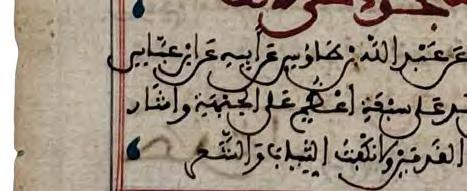 السجود على
عن عبد الله بن طاوس عن ابيه عن ابن عباس
على سبعة اعظم على الجبهة واشار
القدمين ولا نكفت الثياب والشعر